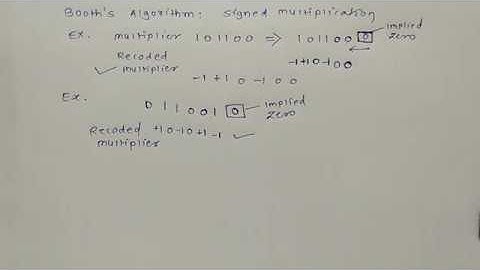 Booth's Algorithm: Signed multiplication
Ex. multiplier 101100 ⇒ 101100 0 implied zero
Recoded multiplier -1+10-100
✓ -1 +1 0 -1 0 0
Ex. 011001 0 implied zero
Recoded multiplier +1 0 -1 0 +1 -1 ✓